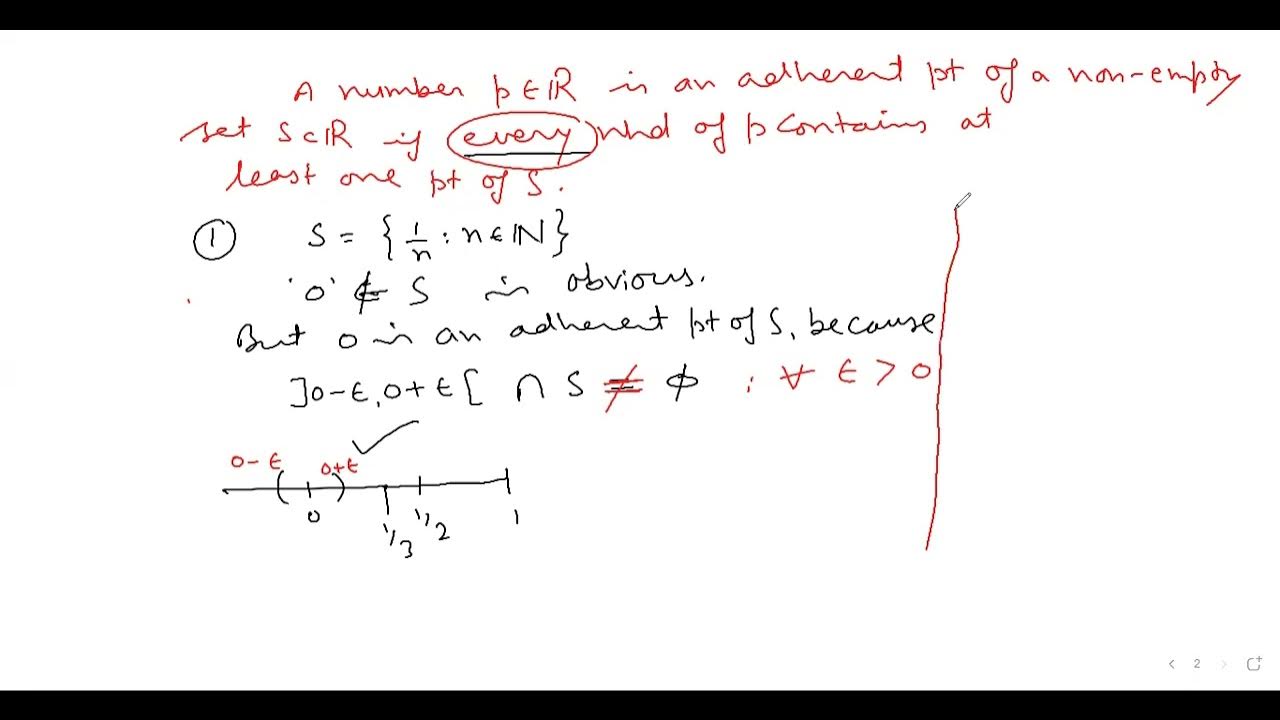 A number p ∈ ℝ is an adherent pt of a non-empty
set S⊂ℝ if every nhd of p contains at
least one pt of S.
① S = {1/n : n ∈ ℕ}
'0' ∉ S is obvious.
But 0 is an adherent pt of S, because
]0-ε, 0+ε[ ∩ S ≠ ϕ ; ∀ ε > 0
0-ε 0+ε
0 1/3 1/2 1
< 2 >